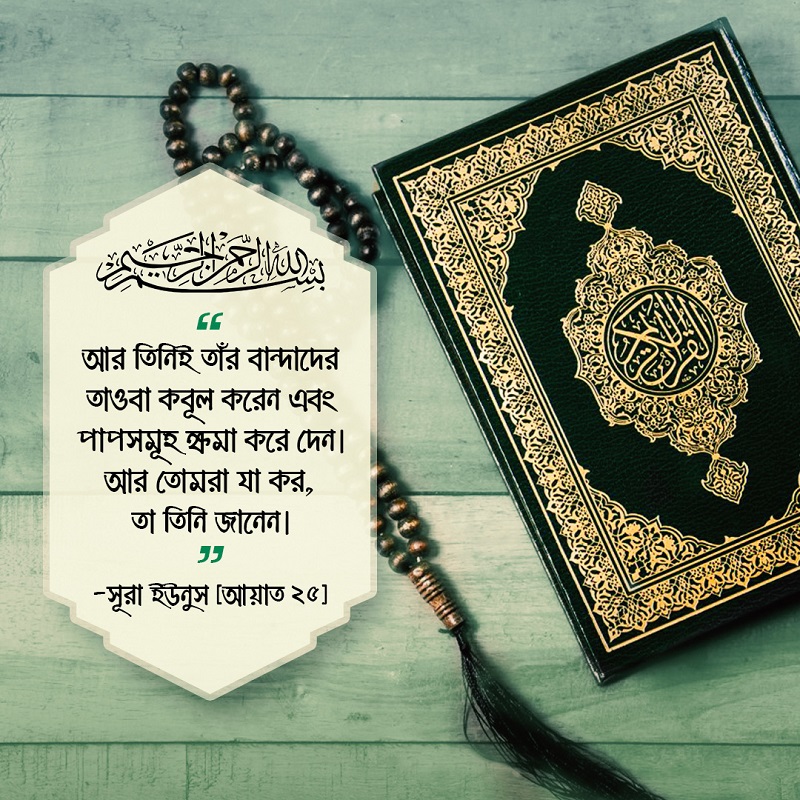 بسم الله الرحمن الرحيم
“
আর তিনিই তাঁর বান্দাদের
তাওবা কবূল করেন এবং
পাপসমূহ ক্ষমা করে দেন।
আর তোমরা যা কর,
তা তিনি জানেন।
”
-সূরা ইউনুস [আয়াত ২৫]
القرآن الكريم